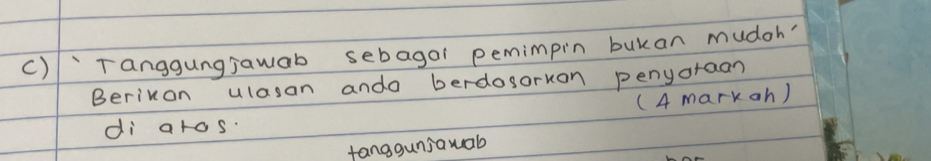 c) 'Tanggungjawab sebagai pemimpin bukan mudah'
Berikan ulasan anda berdasarkan penyataan
di atas.
(4 markah)
tanggunjawab